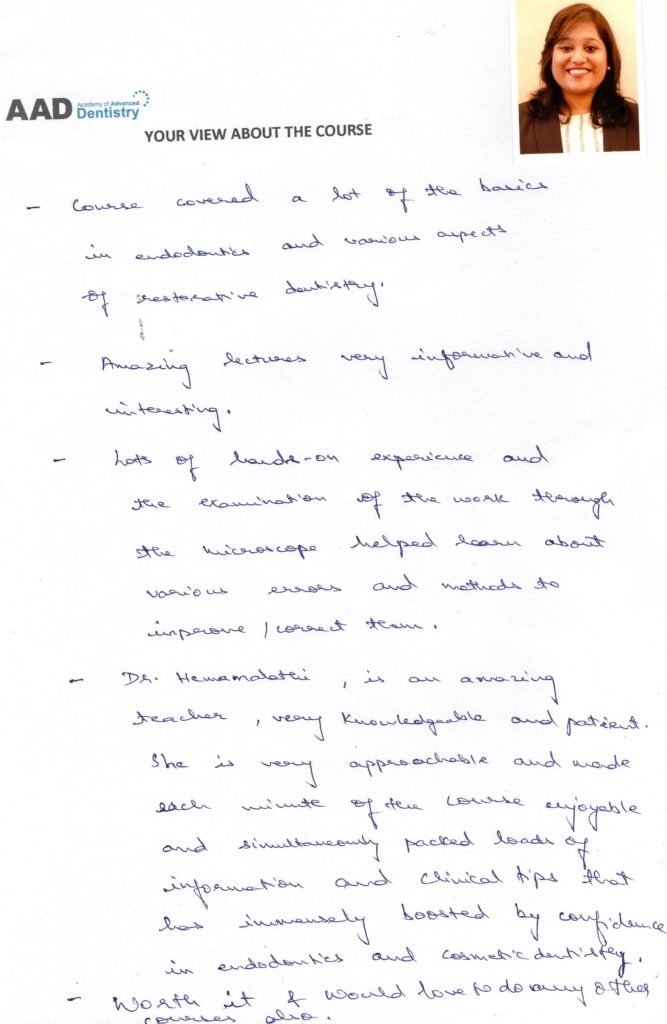 AAD Academy of Advanced Dentistry
YOUR VIEW ABOUT THE COURSE
- Course covered a lot of the basics
in endodontics and various aspects
of restorative dentistry.
- Amazing lectures very informative and
interesting.
- Lots of hands-on experience and
the examination of the work through
the microscope helped learn about
various errors and methods to
improve / correct them.
- Dr. Hemamalathi, is an amazing
teacher, very knowledgeable and patient.
She is very approachable and made
each minute of the course enjoyable
and simultaneously packed loads of
information and clinical tips that
has immensely boosted by confidence
in endodontics and cosmetic dentistry.
- Worth it & would love to do any other
courses also.